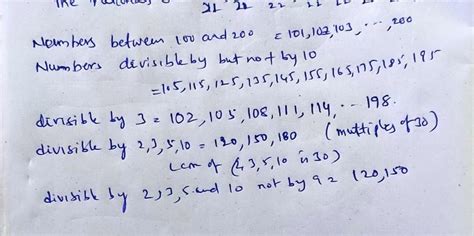 Numbers between 100 and 200 = 101,102,103, ..., 200
Numbers divisible by but not by 10
= 105, 115, 125, 135, 145, 155, 165, 175, 185, 195
divisible by 3 = 102, 105, 108, 111, 114, ... 198.
divisible by 2,3,5,10 = 120, 150, 180 (multiples of 30)
Lcm of (2,3,5,10 is 30)
divisible by 2,3,5 and 10 not by 9 = 120,150